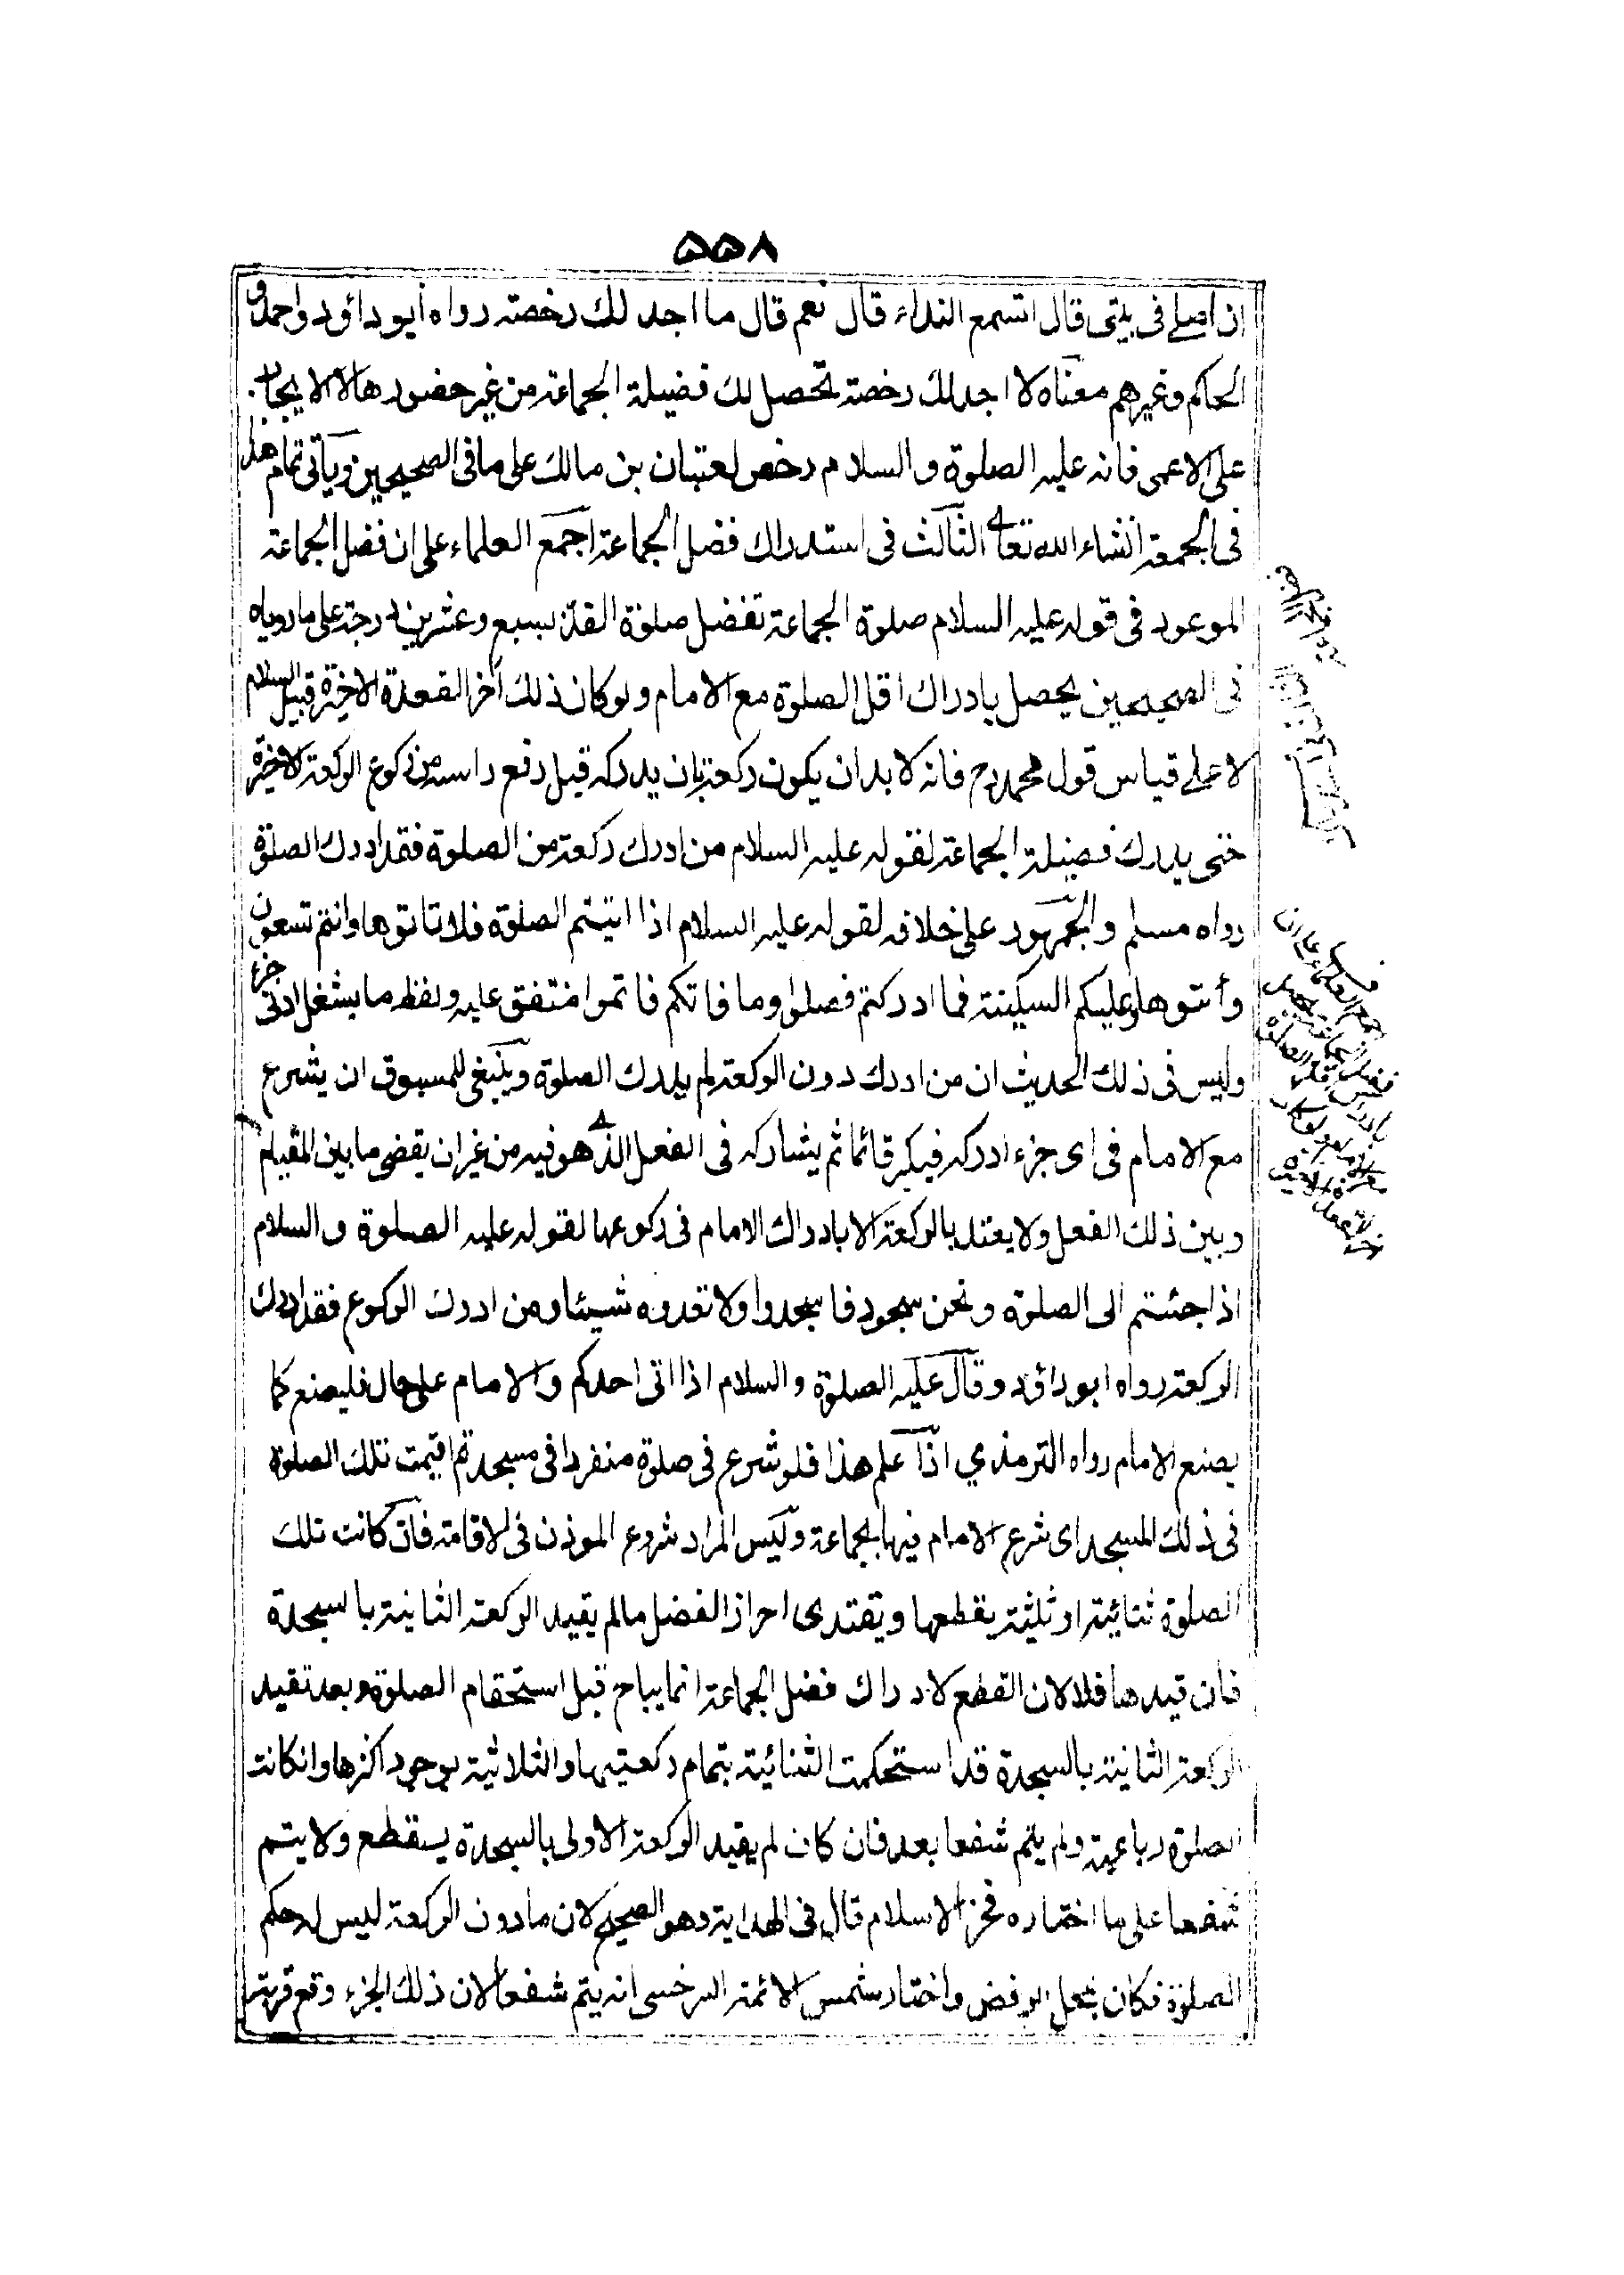 ۵۵۸
ان اصلے فی بیتی قال اتسمع النداء قال نعم قال ما اجد لك رخصة رواه ابو داؤد واحمد و
الحاكم وغيرهم معناه لا اجد لك رخصة تحصل لك فضيلة الجماعة من غير حضورها لا الايجاب
على الاعمى فانه عليه الصلوة والسلام رخص لعتبان بن مالك على ما فى الصحيحين وياتى تمام هذا
فى الجمعة انشاء الله تعالے الثالث فى استدراك فضل الجماعة اجمع العلماء على ان فضل الجماعة
الموعود فى قوله عليه السلام صلوة الجماعة تفضل صلوة الفذ بسبع وعشرين درجة على ما روياه
فى الصحيحين يحصل بادراك اقل الصلوة مع الامام ولو كان ذلك آخر القعدة الاخيرة قبيل السلام
لا علے قياس قول محمد رح فانه لا بد ان يكون ركعة بان يدركه قبل رفع راسه من ركوع الركعة الاخيرة
حتى يدرك فضيلة الجماعة لقوله عليه السلام من ادرك ركعة من الصلوة فقد ادرك الصلوة
رواه مسلم والجمهور على خلافه لقوله عليه السلام اذا اتيتم الصلوة فلا تاتوها وانتم تسعون
وأتوها وعليكم السكينة فما ادركتم فصلوا وما فاتكم فاتموا متفق عليه ولفظه ما يشغل ادنى جزء
وليس فى ذلك الحديث ان من ادرك دون الركعة لم يدرك الصلوة وينبغى للمسبوق ان يشرع
مع الامام فى اى جزء ادركه فيكبر قائما ثم يشاركه فى الفعل الذے هو فيه من غير ان يقضى ما بين القيام
وبين ذلك الفعل ولا يعتد بالركعة الا بادراك الامام فى ركوعها لقوله عليه الصلوة والسلام
اذا جئتم الى الصلوة ونحن سجود فاسجدوا ولا تعدوه شيئا ومن ادرك الركوع فقد ادرك
الركعة رواه ابو داؤد وقال عليه الصلوة والسلام اذا اتى احدكم والامام على حال فليصنع كما
يصنع الامام رواه الترمذي اذا علم هذا فلو شرع فى صلوة منفردا فى مسجد ثم اقيمت تلك الصلوة
فى ذلك المسجد اى شرع الامام فيها بجماعة وليس المراد شروع الموذن فى الاقامة فان كانت تلك
الصلوة ثنائية او ثلثية يقطعها ويقتدى احراز الفضل مالم يقيد الركعة الثانية بالسجدة
فان قيدها فلا لان القطع لادراك فضل الجماعة انما يباح قبل استحقام الصلوة وبعد تقيد
الركعة الثانية بالسجدة قد استحكمت الثنائية بتمام ركعتيها والثلاثية بوجود اكثرها وانكانت
الصلوة رباعية ولم يتم شفعا بعد فان كان لم يقيد الركعة الاولى بالسجدة يقطع ولا يتم
شفعا على ما اختاره فخر الاسلام قال فى الهداية وهو الصحيح لان ما دون الركعة ليس له حكم
الصلوة فكان بمحل الرفض واختار شمس الائمة السرخسى انه يتم شفعا لان ذلك الجزء وقع قربة